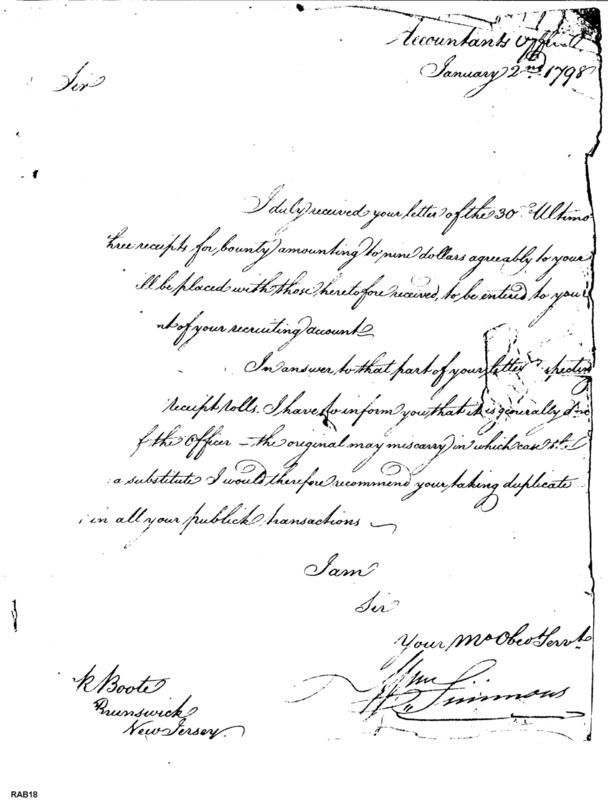 Accountants Office
January 2nd 1798
Sir
I duly received your letter of the 30th Ultimo
hree receipts for bounty amounting to nine dollars agreably to your
ill be placed with those heretofore received, to be entered to your
nt of your recruiting account
In answer to that part of your letter specting
receipt rolls. I have to inform you that it is generally done
f the Officer – the original may miscarry in which case
a substitute I would therefore recommend your taking duplicate
in all your publick transactions
I am
Sir
Your Mo Obed Servt
Wm Simmons
k Boote
Brunswick
New Jersey
RAB18